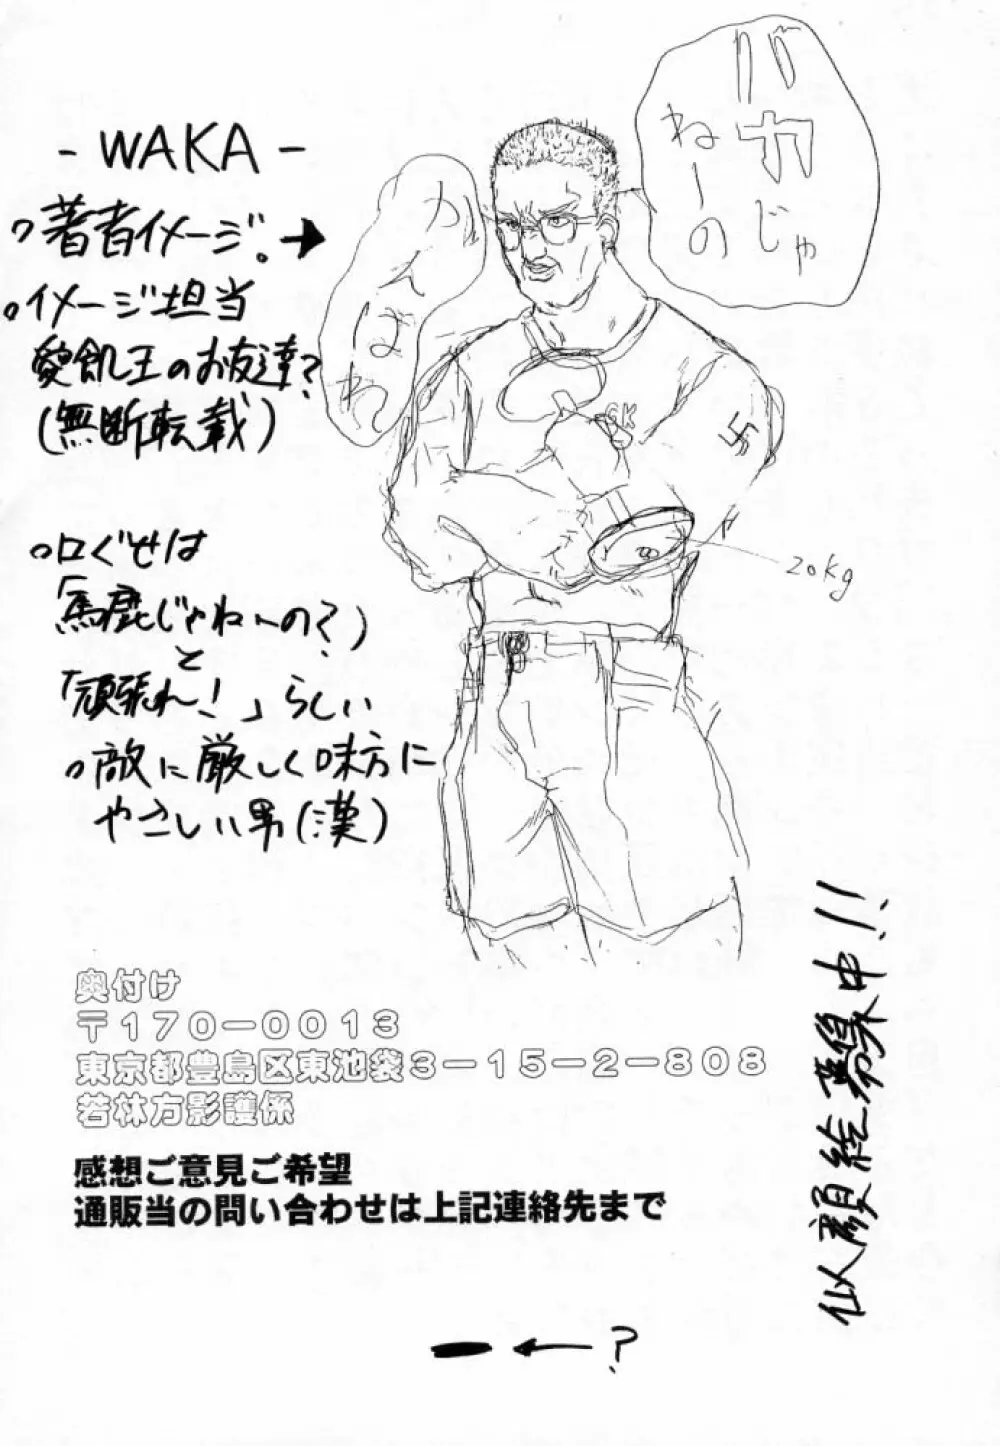 - WAKA -
著者イメージ。→
イメージ担当
愛飢王のお友達?
(無断転載)
口ぐせは
「馬鹿じゃねーの?」
と
「頑張れ!」らしい
敵に厳しく味方に
やさしい男(漢)
バカじゃ
ねーの
がんばれ
GK
20kg
似顔絵募集中!!
奥付け
〒170-0013
東京都豊島区東池袋3-15-2-808
若林方影護係
感想ご意見ご希望
通販当の問い合わせは上記連絡先まで
←?